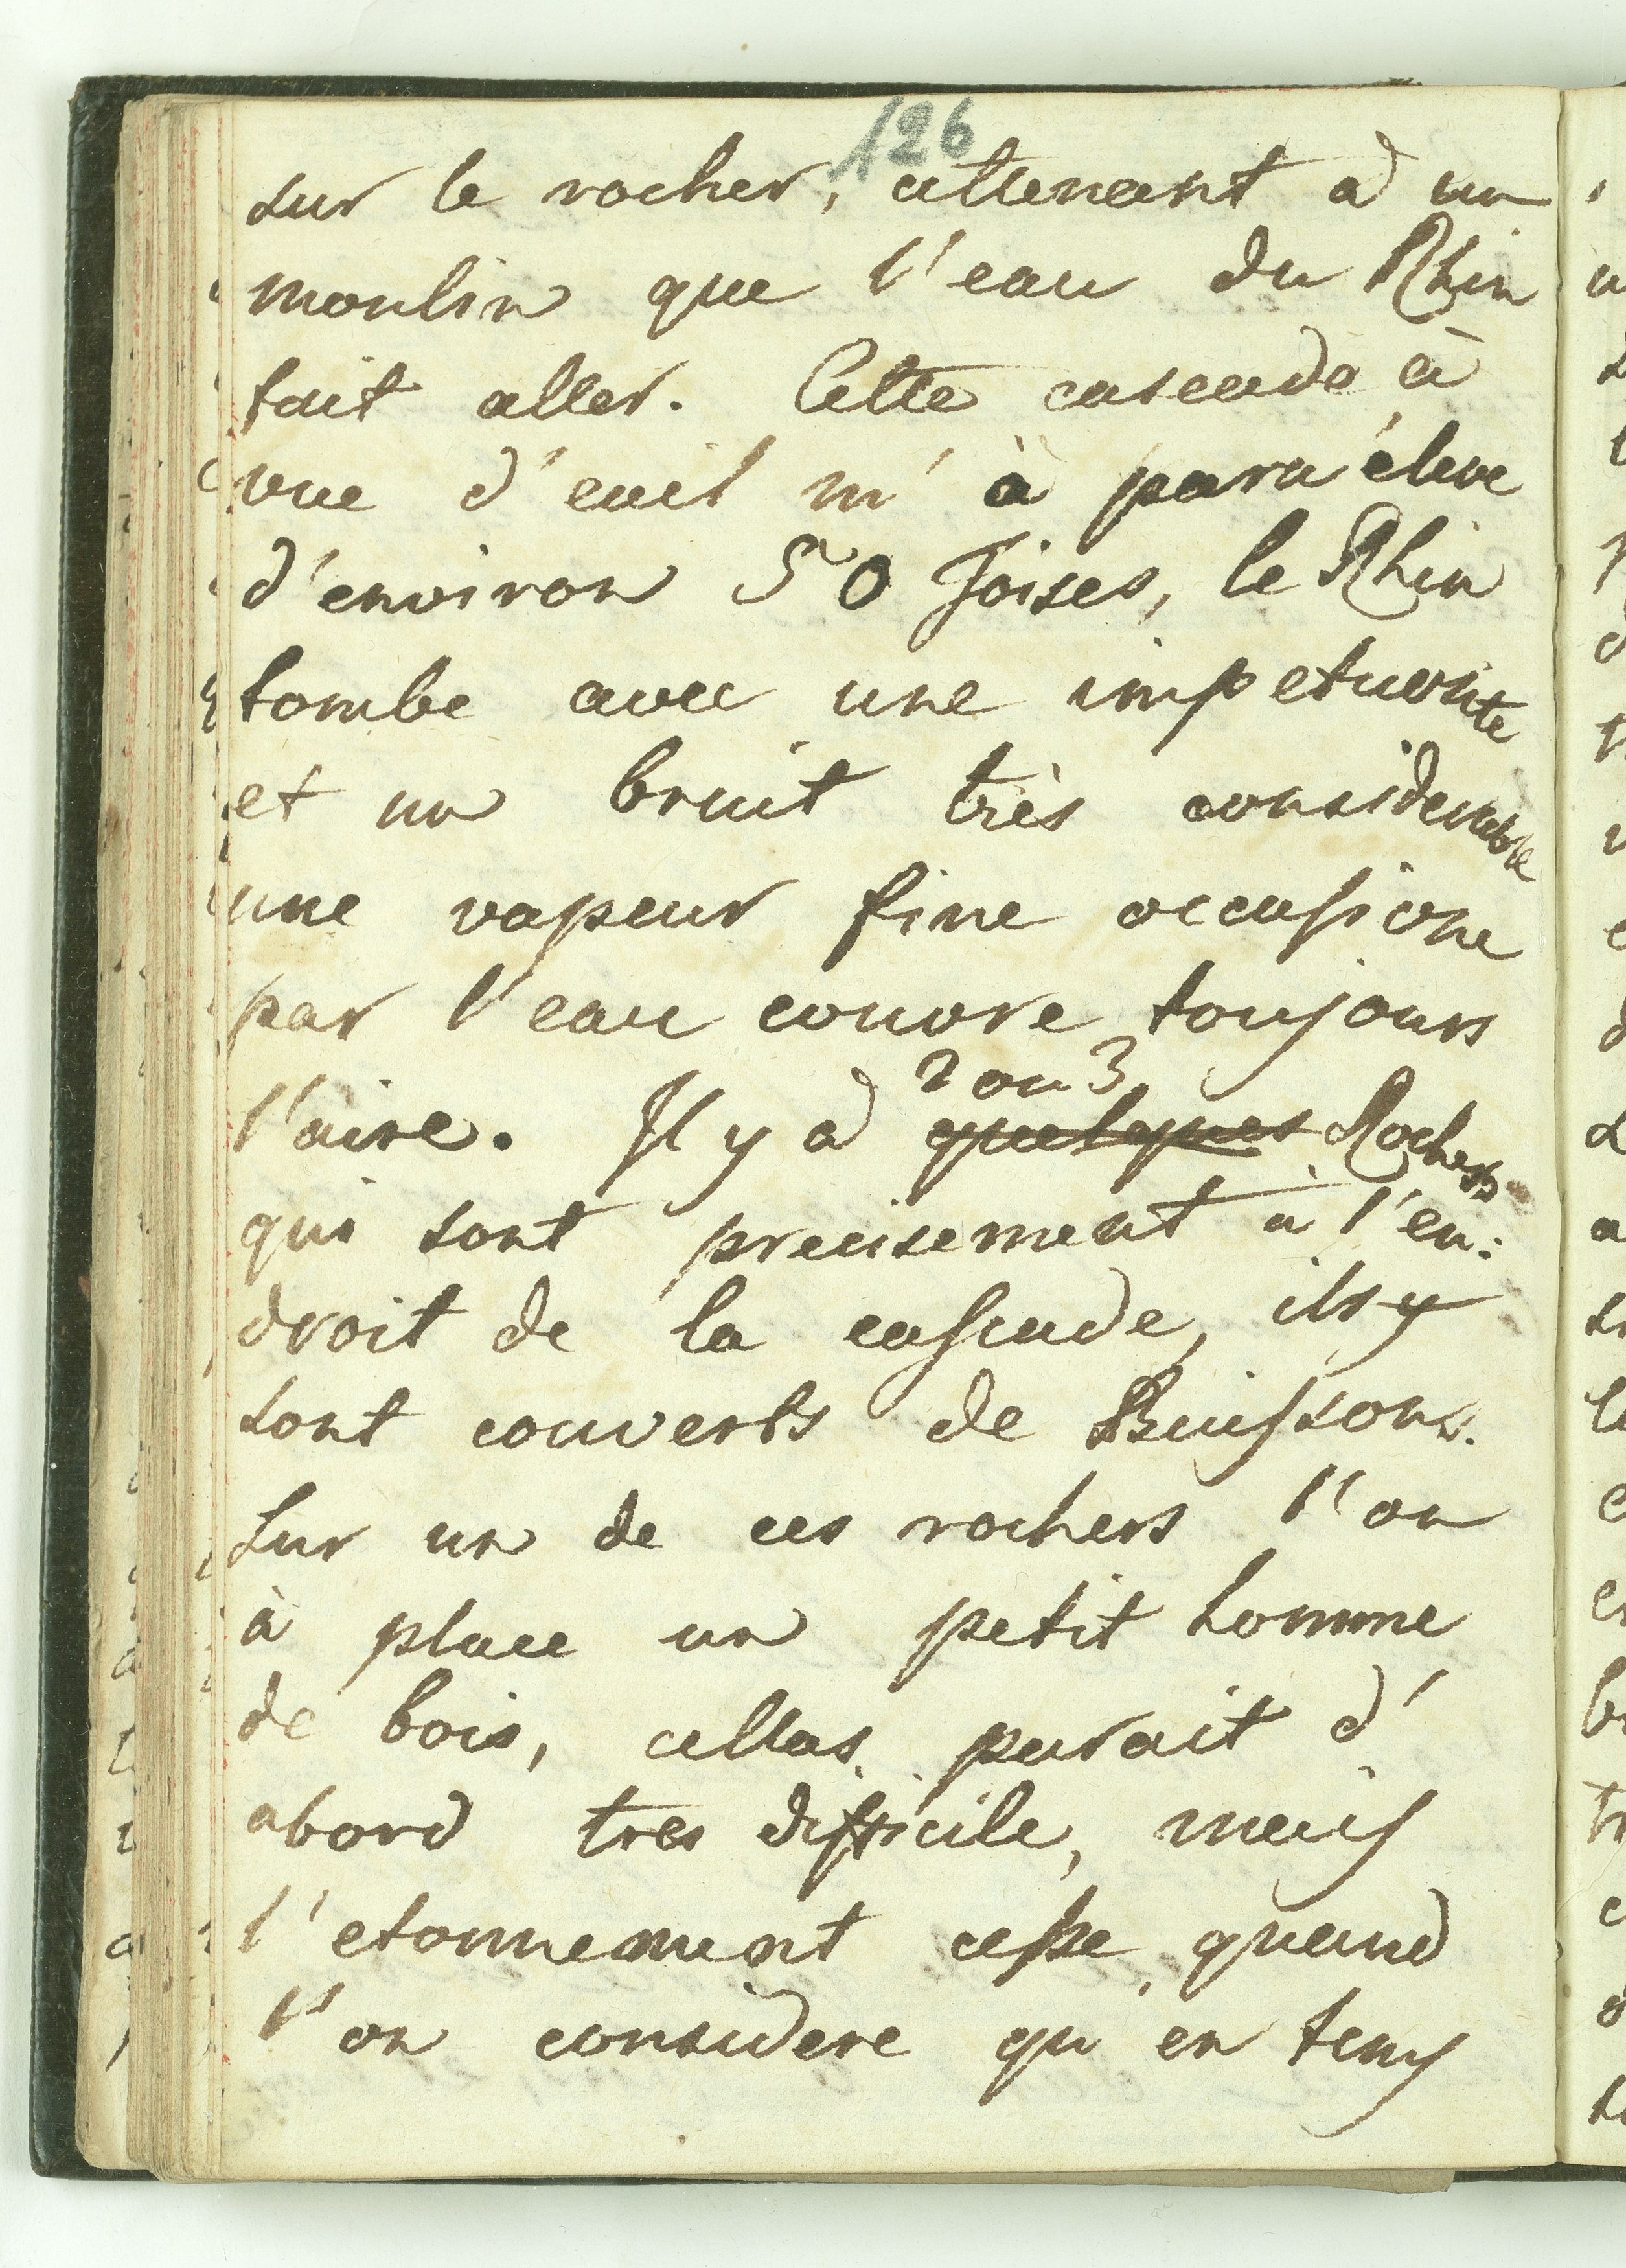 126
sur le rocher, attenant à un
moulin que l'eau du Rhin
fait aller. Cette cascade à
vue d'euil m'à paru éleve
d'environ 50 Toises, le Rhin
tombe avec une impetuosite
et un bruit très considerable
une vapeur fine occasione
par l'eau couvre toujours
l'aire. Il y a quelques 2 ou 3 Rochers
qui sont precisement à l'en:
droit de la cascade, ils y
sont couverts de Buissons.
Sur un de ces rochers l'on
à place un petit homme
de bois, cellas parait d'
abord tres difficile, mais
l'etonnement cesse quand
l'on considere qu'en tems